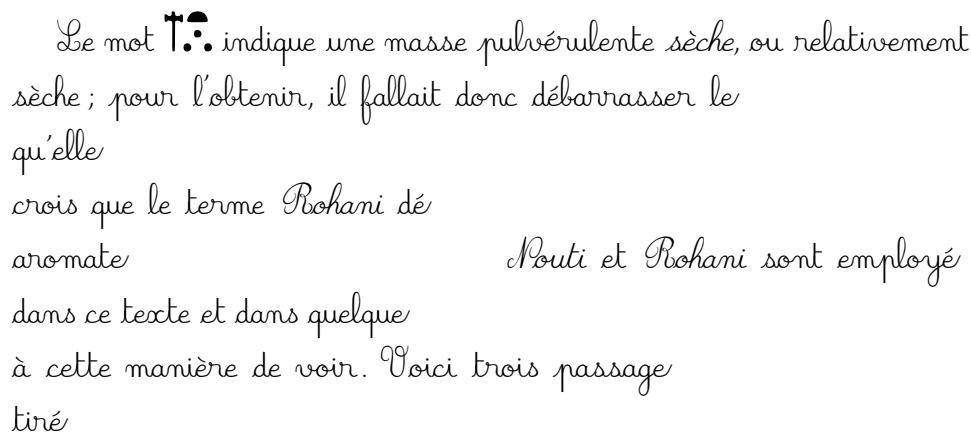 Le mot indique une masse pulvérulente sèche, ou relativement
sèche ; pour l'obtenir, il fallait donc débarrasser le
qu'elle
crois que le terme Rohani dé
aromate Nouti et Rohani sont employé
dans ce texte et dans quelque
à cette manière de voir. Voici trois passage
tiré